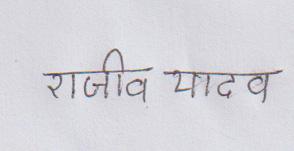 राजीव यादव